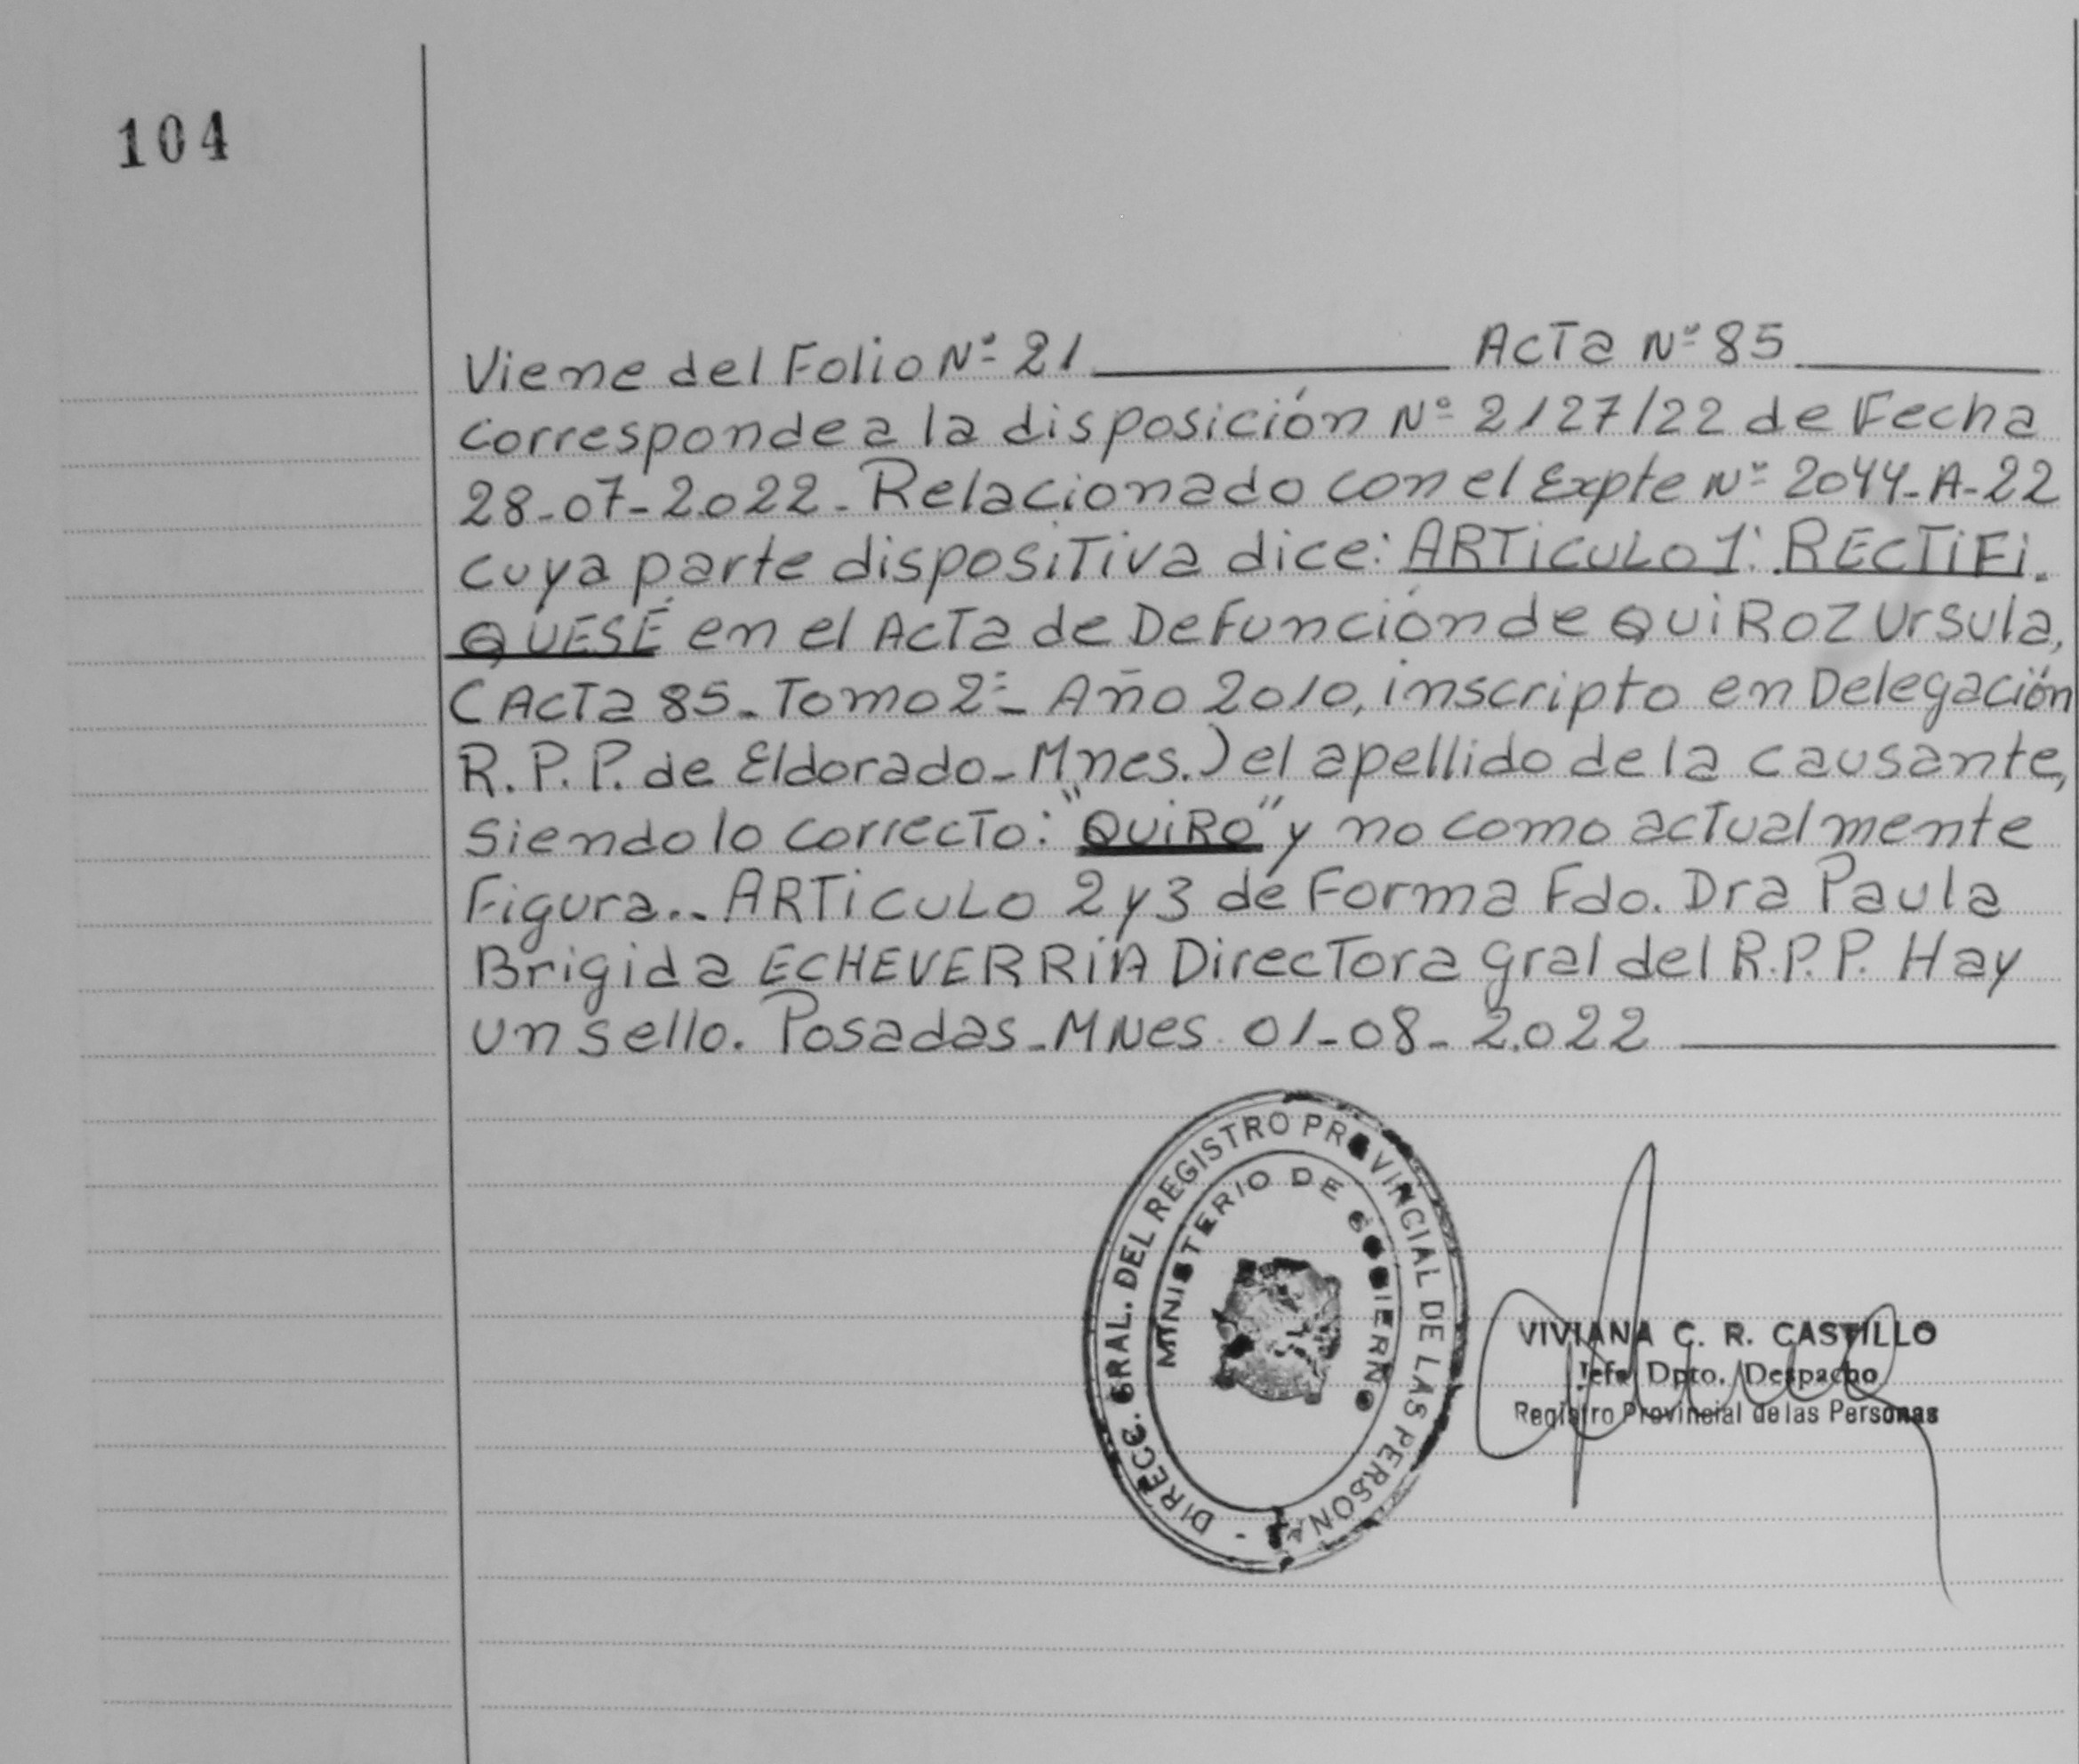 104
Viene del Folio Nº 21 Acta Nº 85
corresponde a la disposición Nº 2127/22 de Fecha
28-07-2.022- Relacionado con el Expte Nº 2044-A-22
cuya parte dispositiva dice: ARTiCULO 1: RECTiFi-
QUESÉ en el Acta de Defunción de QUiROZ Ursula,
(Acta 85- Tomo 2º- Año 2010, inscripto en Delegación
R.P.P. de Eldorado- Mnes.) el apellido de la causante,
siendo lo correcto: "QUiRO" y no como actualmente
Figura.- ARTiCULO 2 y 3 de Forma Fdo. Dra Paula
Brigida ECHEVERRÍA Directora gral del R.P.P. Hay
un sello. Posadas- MNes 01-08- 2.022
DIRECC. GRAL. DEL REGISTRO PROVINCIAL DE LAS PERSONAS -
MINISTERIO DE GOBIERNO
VIVIANA C. R. CASTILLO
Jefe Dpto. Despacho
Registro Provincial de las Personas